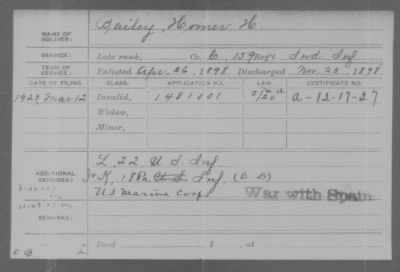 NAME OF SOLDIER: Bailey, Homer H.
SERVICE: Late rank, Co. C, 159 Reg't Ind Inf
TERM OF SERVICE: Enlisted Apr. 26, 1898 Discharged Nov. 23, 1898
DATE OF FILING. CLASS. APPLICATION NO. LAW. CERTIFICATE NO.
1923 Mar 12 Invalid, 1481001 A-12-17-27
Widow,
Minor,
ADDITIONAL SERVICES: L, 22 U S Inf
K, 18 Pa Inf
US Marine Corps War with Spain
REMARKS:
Died , 1 , at